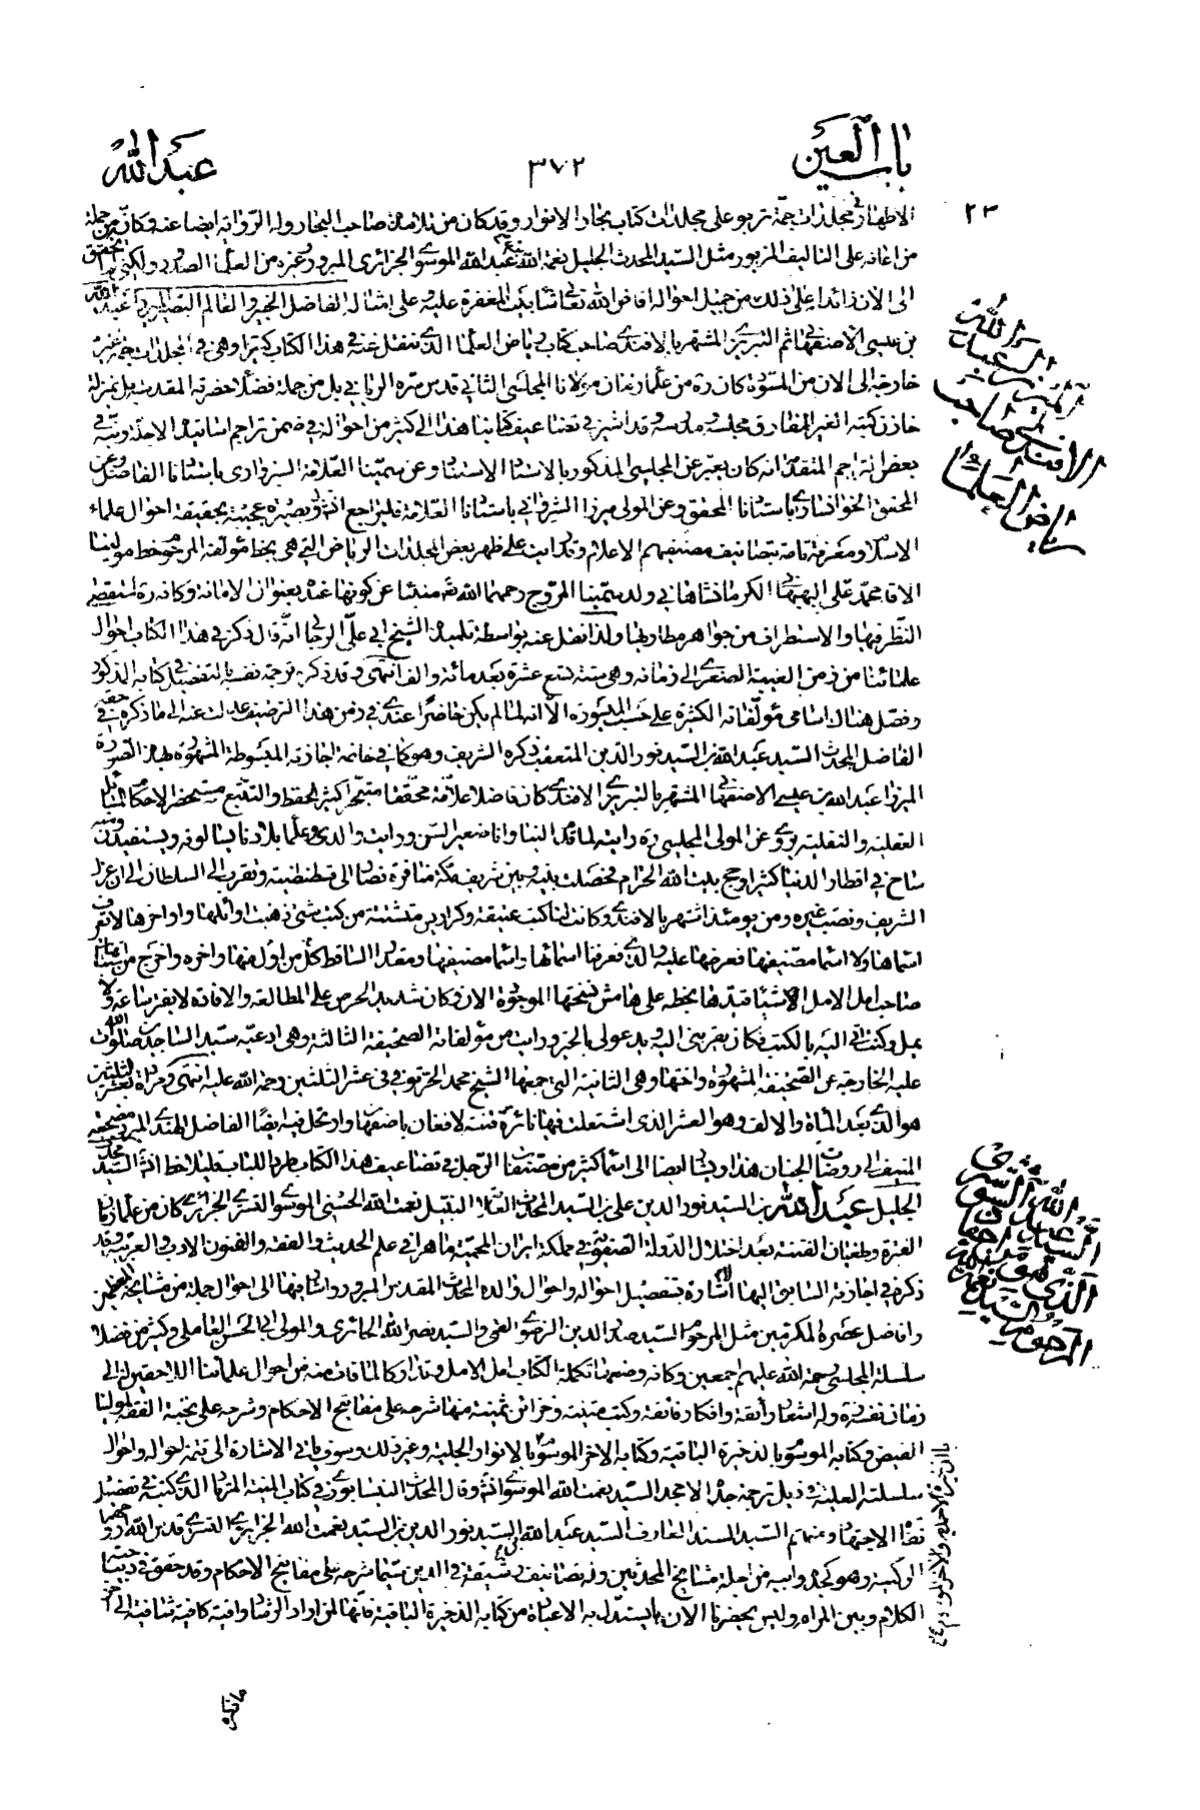 باب العين
٣٧٢
عبد الله
الاطهار في مجلدات جمة تربو على مجلدات كتاب بحار الانوار وقد كان من تلامذة صاحب البحار وله الرواية ايضا عنه وكان من جملة
من اعانه على التاليف المزبور مثل السيد المحدث الجليل نعمة الله بن عبد الله الموسوي الجزائري المبرور وغيره من العلماء الصدور ولكن لم يتحقق
الى الان زائدا على ذلك من جميل احواله افاض الله تعالى شآبيب المغفرة عليه وعلى امثاله الفاضل الخبير والعالم البصير عبد الله
بن عيسى الاصفهاني ثم التبريزي المشتهر بالافندي صاحب كتاب رياض العلماء الذي ننقل عنه في هذا الكتاب كثيرا وهي في مجلدات جمة غير
خارجة الى الان من المسودة كان ره من علماء زمان مولانا المجلسي الثاني قدس سره الرباني بل من جملة فضلاء حضرته المقدسة بل بمنزلة
خازن كتبه الغير المفارق مجلسه ومدرسه وقد اشير في تضاعيف كتابنا هذا الى كثير من احواله في ضمن تراجم اساتيده الاجلة وسيه في
بعض التراجم المتقدمة انه كان يعبر عن المجلسي المذكور بالاستاد الاستناد وعن سمينا العلامة السبزواري باستادنا الفاضل وعن
المحقق الخوانساري باستادنا المحقق وعن المولى ميرزا الشيرواني باستادنا العلامة فليراجع انش وبصيرة عجيبة بحقيقة احوال علماء
الاسلام ومعرفة تامة بتصانيف مصنفيهم الاعلام وقد رايت على ظهر بعض مجلدات الرياض التي هي بخط مؤلفه المرحوم خط مولينا
الاقا محمد علي البهبهاني الكرمانشاهاني ولد سمينا المروج رحمهما الله تعه منبئا عن كونها عنده بعنوان الامانة وكانه ره لم يتقض
النظر فيها والاستطراف من جواهر مطاويها ولذا نقل عنه بواسطة تلميذه الشيخ ابي علي الرجالي انه قال ذكر في هذا الكتاب احوال
علمائنا من زمن الغيبة الصغرى الى زمانه وهي سنة تسع عشرة بعد مائة والف انتهى وقد ذكر ترجمة نفسه بالتفصيل في كتابه المذكور
وفصل هناك اسامي مؤلفاته الكثيرة على حسب الميسور له الا انه لما لم يكن حاضرا عندي في زمن هذا الترصيف عدلت عنه الى ما ذكره في حقه
الفاضل المحدث السيد عبد الله بن السيد نور الدين المتعقب ذكره الشريف وهو كما في خاتمة اجازته المبسوطة المشهورة بهذه الصورة
الميرزا عبد الله بن عيسى الاصفهاني المشتهر بالتبريزي الافندي كان فاضلا علامة محققا متبحرا كثير الحفظ والتتبع مستحضرا لاحكام المسائل
العقلية والنقلية يروي عن المولى المجلسي ره رايته لما قدم الينا وانا صغير السن ورايت والدي وعلماء بلادنا يسالونه ويستفيدون منه
ساح في اقطار الدنيا كثيرا وحج بيت الله الحرام فحصلت بينه وبين شريف مكة منافرة فصار الى قسطنطنية وتقرب الى السلطان الى ان عزل
الشريف ونصب غيره ومن يومئذ اشتهر بالافندي وكانت لنا كتب عتيقة وكراريس متشتتة من كتب شتى ذهبت اوائلها واواخرها لا نعرف
اسماءها ولا اسماء مصنفيها فعرضها عليه والدي فعرفنا اسمائها واسماء مصنفيها ومقدار الساقط كل من اول منها واخره واخرج من
صاحب امل الامل اشياء قيدها بخطه على هامش نسختها الموجودة الان وكان شديد الحرص على المطالعة والافادة لا يفتر ساعة ولا
يمل وكنت اتي اليه بالكتب فكان يقربني اليه ويدعو لي بالخير ورايت من مؤلفاته الصحيفة الثالثة وهي ادعية سيد الساجدين صلوات الله
عليه الخارجة عن الصحيفة المشهورة واختها وهي الثانية التي جمعها الشيخ محمد الحر توفي في عشر الثلثين رحمة الله عليه انتهى ومراده بعشر الثلثين
هو الذي بعد المائة والالف وهو العشر الذي اشتعلت فيها نائرة فتنة الافغان باصفهان وارتحل فيه ايضا الفاضل الهندي المبرور مضجعه
المنيف الى روضات الجنان هذا وسياتي ايضا الى اسماء كثير من مصنفات الرجل في تضاعيف هذا الكتاب طرد اللباب فليلاحظ انش السيد
الجليل عبد الله بن السيد نور الدين علي بن السيد المحدث العلامة النبيل نعمت الله الحسيني الموسوي التستري الجزائري كان من علماء زمان
الفترة وطغيان الفتنة بعد اختلال الدولة الصفوية في مملكة ايران المحمية ماهرا في علم الحديث والفقه والفنون الادبية والعربية وقد
ذكر في اجازته السابق اليها الاشارة تفصيل احواله واحوال والده المحدث المقدس المبرور واشار فيها الى احوال جملة من مشايخه
وافاضل عصره المكرمين مثل المرحوم السيد صدر الدين الرضوي القمي والسيد نصر الله الحائري والمولى ابي الحسن الشريف العاملي وكثير من فضلاء
سلسلة المجلسي رحمة الله عليهم اجمعين وكانه وضعها تكملة لكتاب امل الامل وتداركا لما فات منه من احوال علمائنا اللاحقين له الى
زمان نفسه وله اشعار رائقة وافكار فائقة وكتب متينة وخزائن ثمينة منها شرحه على مفاتيح الاحكام وشرحه على نخبة الفقه لمولينا
الفيض وكتابه الموسوم بالذخيرة الباقية وكتابه الاخر الموسوم بالانوار الجلية وغير ذلك وسوف ياتي الاشارة الى تتمة احواله واحوال
سلسلته العلية في ذيل ترجمة جده الامجد السيد نعمت الله الموسوي انش وقال المحدث النيسابوري في كتاب المنية المرتاد الذي كتبه في تفصيل
نفاة الاجتهاد ومنهم السيد السند العارف السيد عبد الله بن السيد نور الدين بن السيد نعمت الله الجزائري التستري قدس الله روحهما
الزكية وهو كجده وابيه من اجلة مشايخ المحدثين وله تصانيف رشيقة في الدين سيما شرحه على مفاتيح الاحكام وقد حقق في ديباجته
الكلام وبين المرام وليس يحضرنا الان ما يستدل به الا عبارة من كتابه الذخيرة الباقية فانها لمن اراد الرشاد وافية كافية شافية الى اخر
٢٣
الميرزا عبد الله
الافندي صاحب
رياض العلماء
السيد عبد الله الموسوي التستري
الذي هو من احفاد
المرحوم السيد نعمة الله
ما ذكره